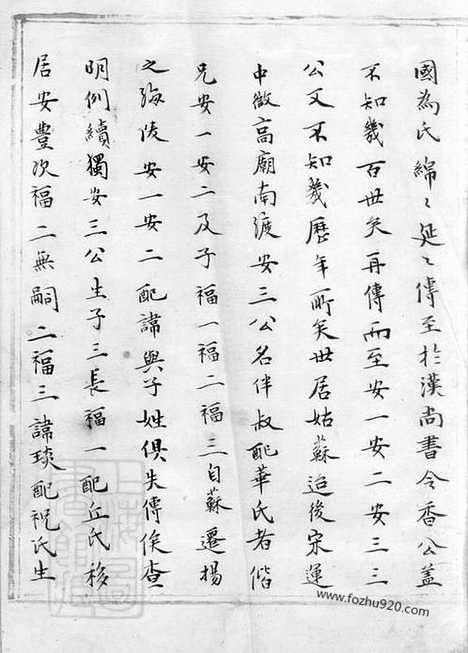 國為氏綿々延々傳至於漢尚書令香公蓋
不知幾百世矣再傳而至安一安二安三三
公又不知幾歷年所矣世居姑蘇迨後宋運
中微高廟南渡安三公名伴叔配華氏者偕
兄安一安二及子福一福二福三自蘇遷揚
之海陵安一安二配諱與子姓俱失傳俟查
明例續獨安三公生子三長福一配丘氏移
居安豐次福二無嗣二福三諱琰配祝氏生
www.fozhu920.com